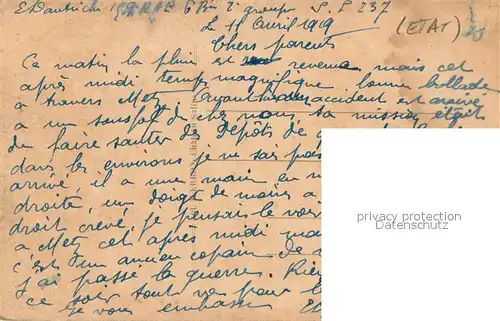 E Dautriche 1 6 Bie 2e groupe S.P 237
Le 11 Avril 1919
(ETAT)
Chers parents
Ce matin la pluie est revenue mais cet
après midi temps magnifique bonne ballade
à travers Metz accident est arrivé
à un de chez nous sa mission était
de faire sauter des Dépôts de
dans les environs je ne sais pas
arrivé, il a une main en m
droite, un doigt de moins à
droit crevé, je pensais le voir
à Metz cet après midi mais
c'est un ancien copain de
j'ai passé la guerre. Rien
ce soir tout va pour l
je vous embrasse
privacy protection
Datenschutz